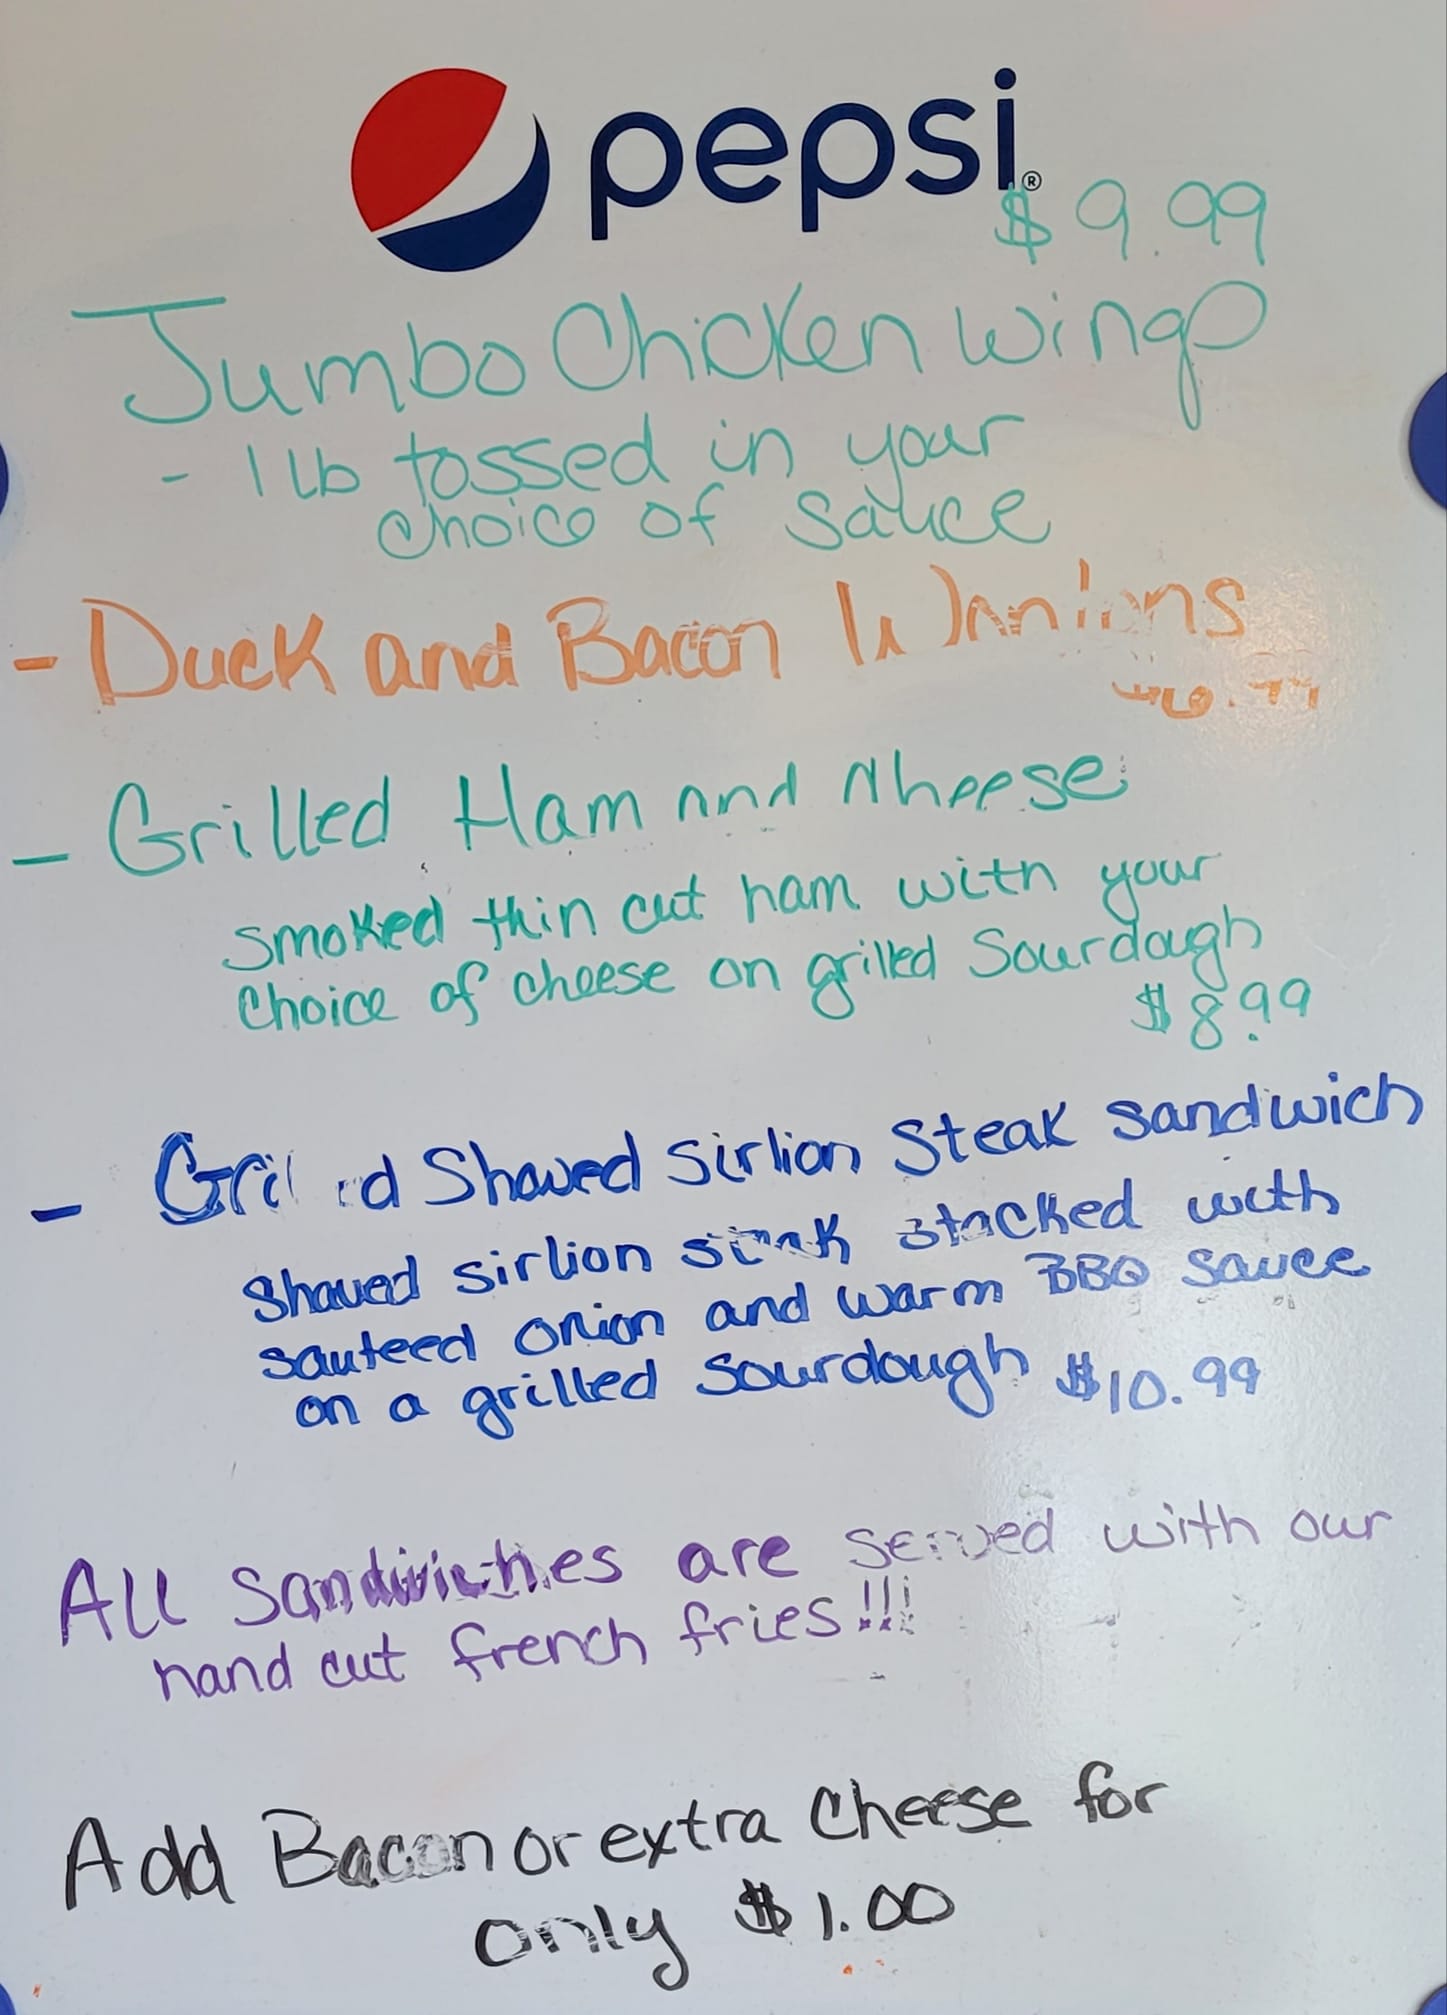 pepsi®
$9.99
Jumbo Chicken Wings
- 1 lb tossed in your
choice of sauce
- Duck and Bacon Wontons
- Grilled Ham and Cheese
smoked thin cut ham with your
choice of cheese on grilled Sourdough
$8.99
- Grilled Shaved Sirlion Steak Sandwich
Shaved sirlion steak stacked with
sauteed onion and warm BBQ sauce
on a grilled Sourdough $10.99
All Sandwiches are served with our
hand cut french fries!!!
Add Bacon or extra Cheese for
only $1.00